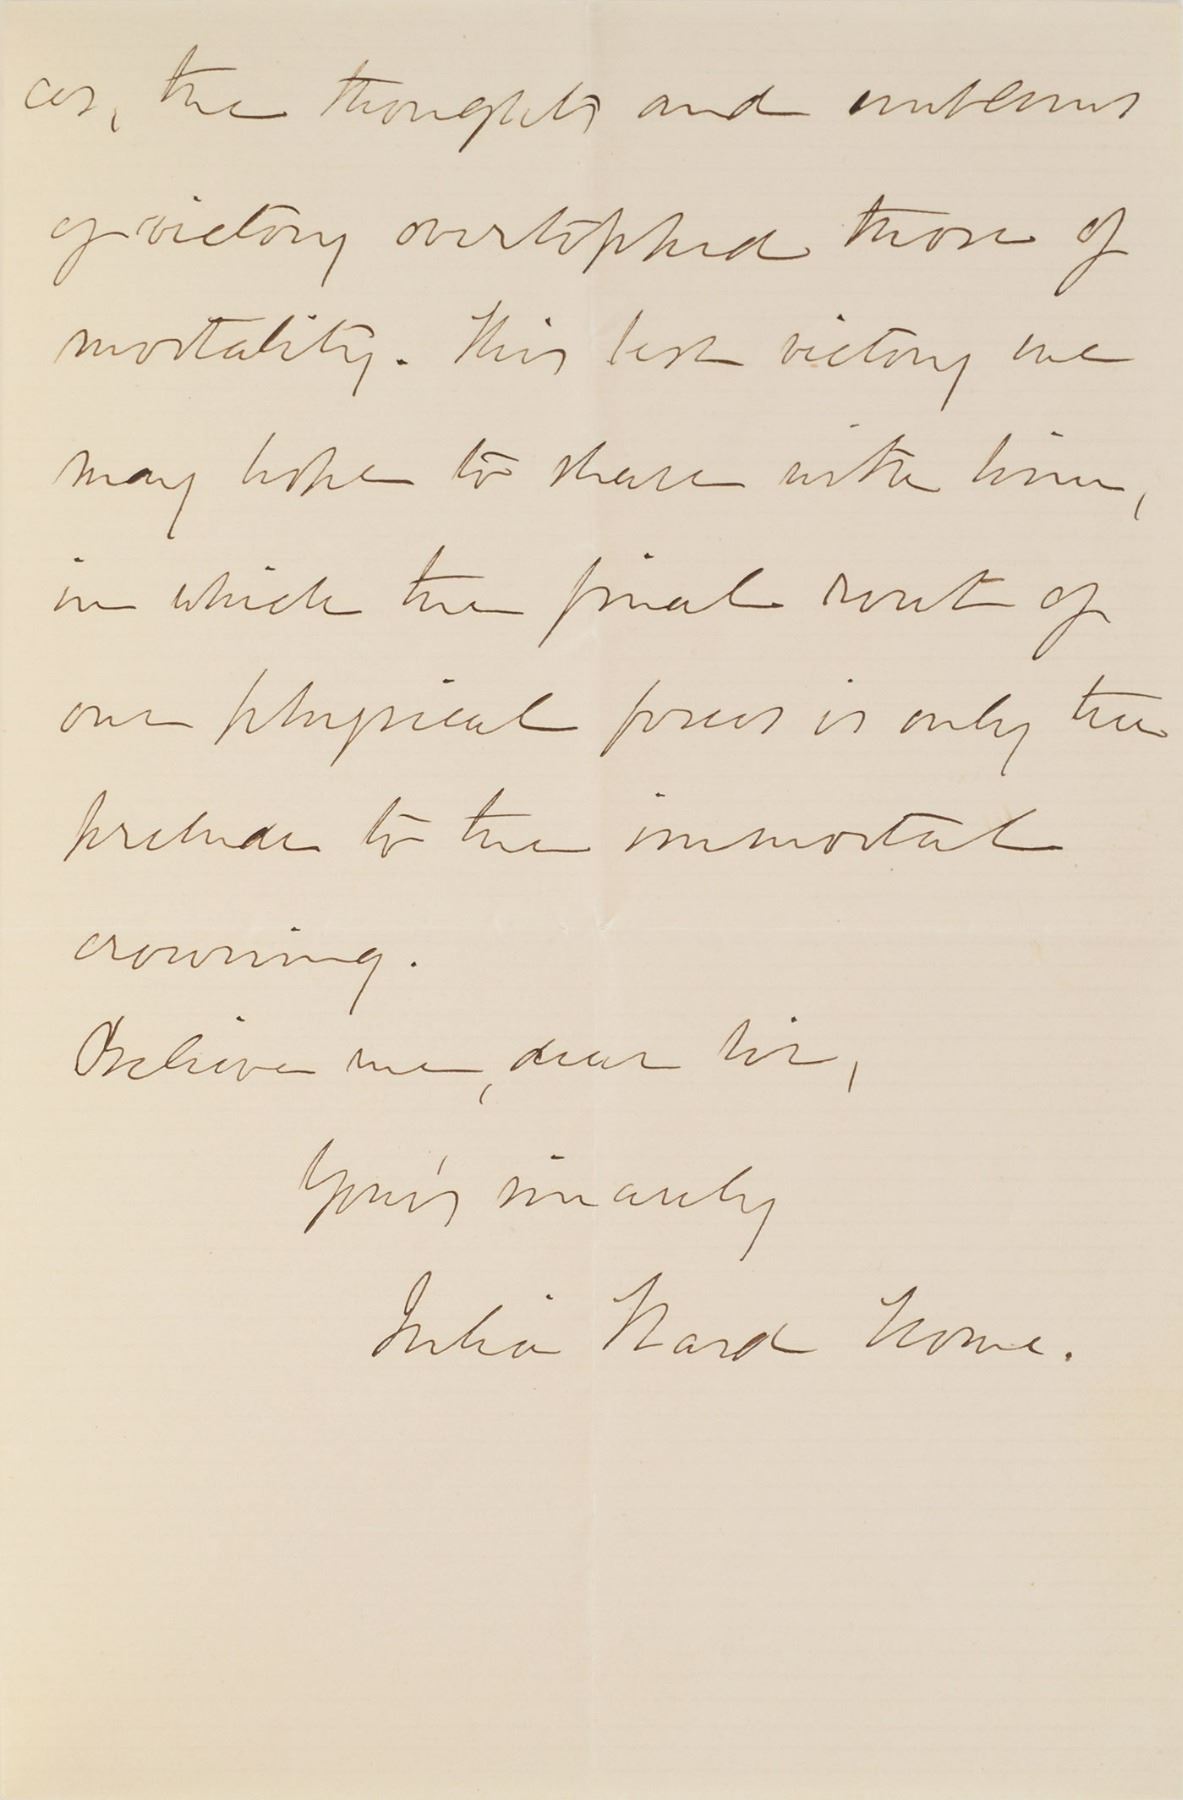 ces, the thoughts and emblems
of victory overtopped those of
mortality. This last victory we
may hope to share with him,
in which the final rout of
our physical forces is only the
prelude to the immortal
crowning.
Believe me, dear Sir,
Your's sincerely
Julia Ward Howe.